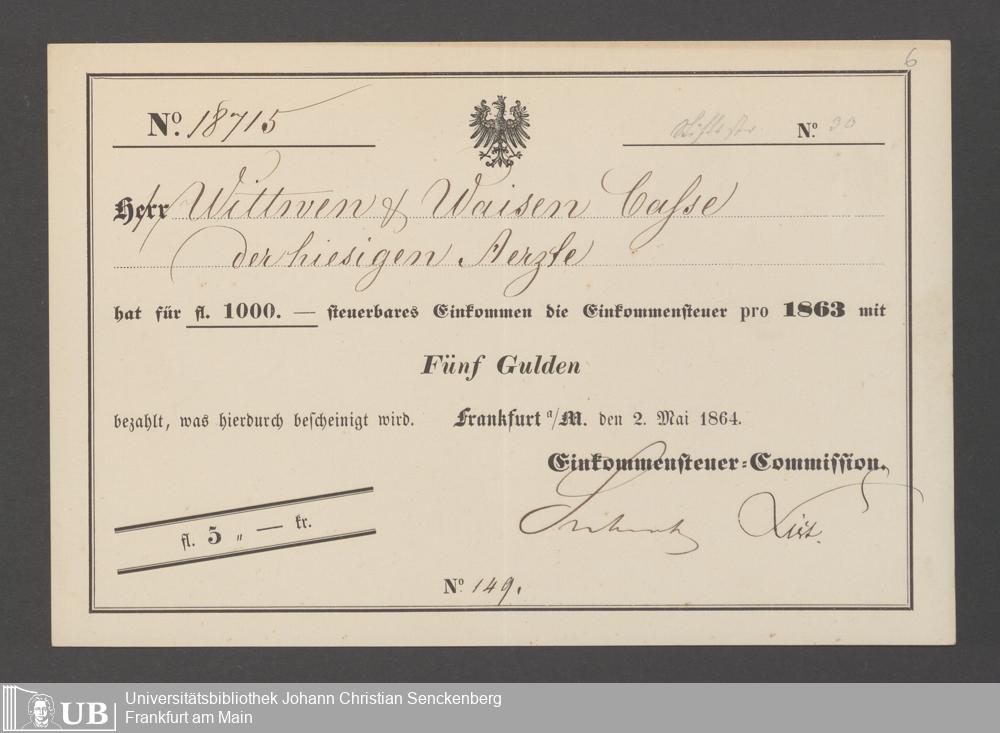 6
No. 18715
No. 30
Herr Wittwen & Waisen Casse
der hiesigen Aerzte
hat für fl. 1000. — steuerbares Einkommen die Einkommensteuer pro 1863 mit
Fünf Gulden
bezahlt, was hierdurch bescheinigt wird. Frankfurt a/M. den 2. Mai 1864.
Einkommensteuer-Commission.
List.
fl. 5 „ — kr.
No 149.
UB
Universitätsbibliothek Johann Christian Senckenberg
Frankfurt am Main